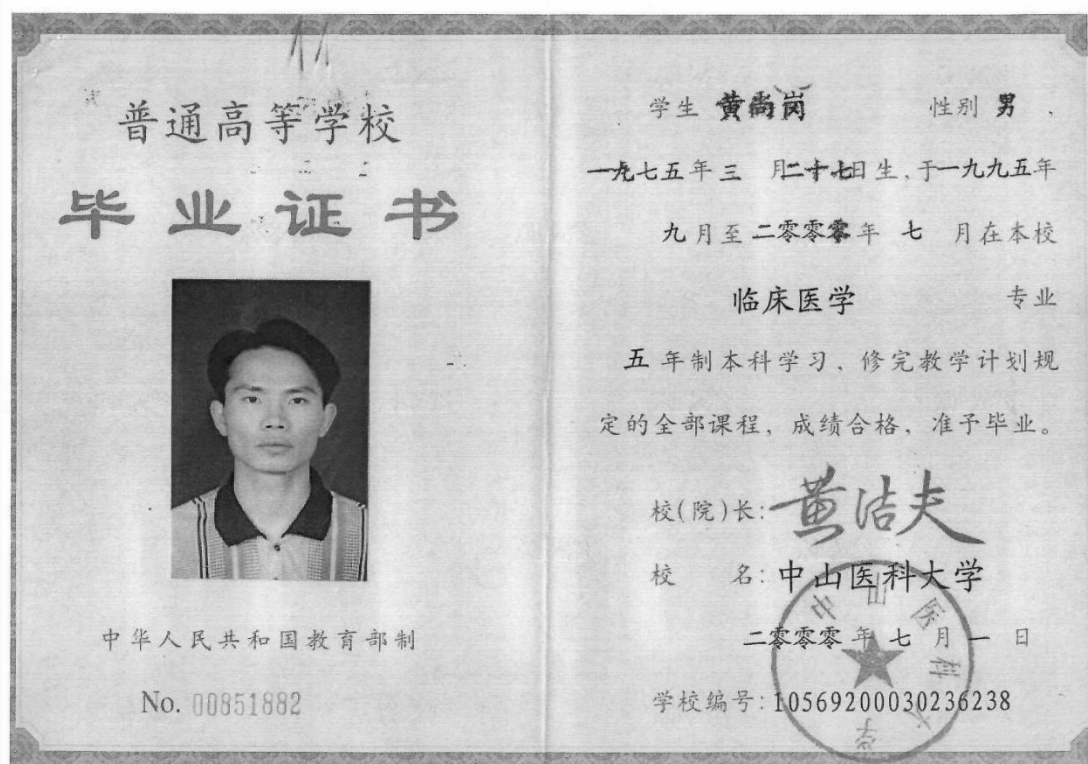 普通高等学校
毕业证书
中华人民共和国教育部制
No. 00851882
学生 黄尚岗 性别 男，
一九七五年三 月二十七日生，于一九九五年
九月至二零零零年 七 月在本校
临床医学 专业
五年制本科学习，修完教学计划规
定的全部课程，成绩合格，准予毕业。
校(院)长：黄洁夫
校 名：中山医科大学
二零零零年七月一日
学校编号：10569200030236238
中山医科大学